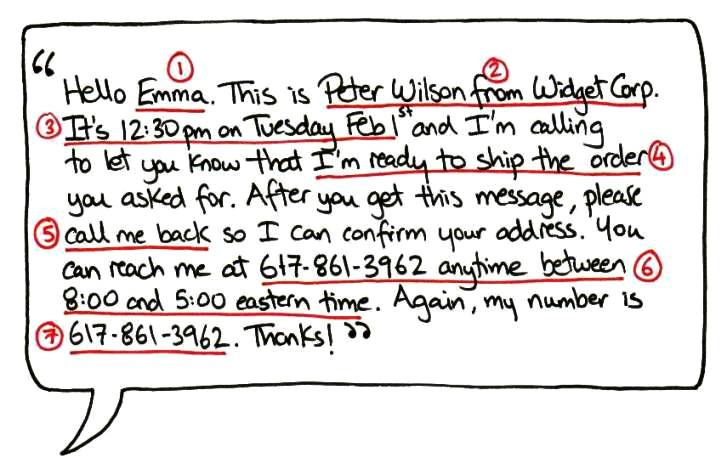 ①  ②
“Hello Emma. This is Peter Wilson from Widget Corp.
③ It's 12:30pm on Tuesday Feb 1st and I'm calling
to let you know that I'm ready to ship the order ④
you asked for. After you get this message, please
⑤ call me back so I can confirm your address. You
can reach me at 617-861-3962 anytime between ⑥
8:00 and 5:00 eastern time. Again, my number is
⑦ 617-861-3962. Thanks!”